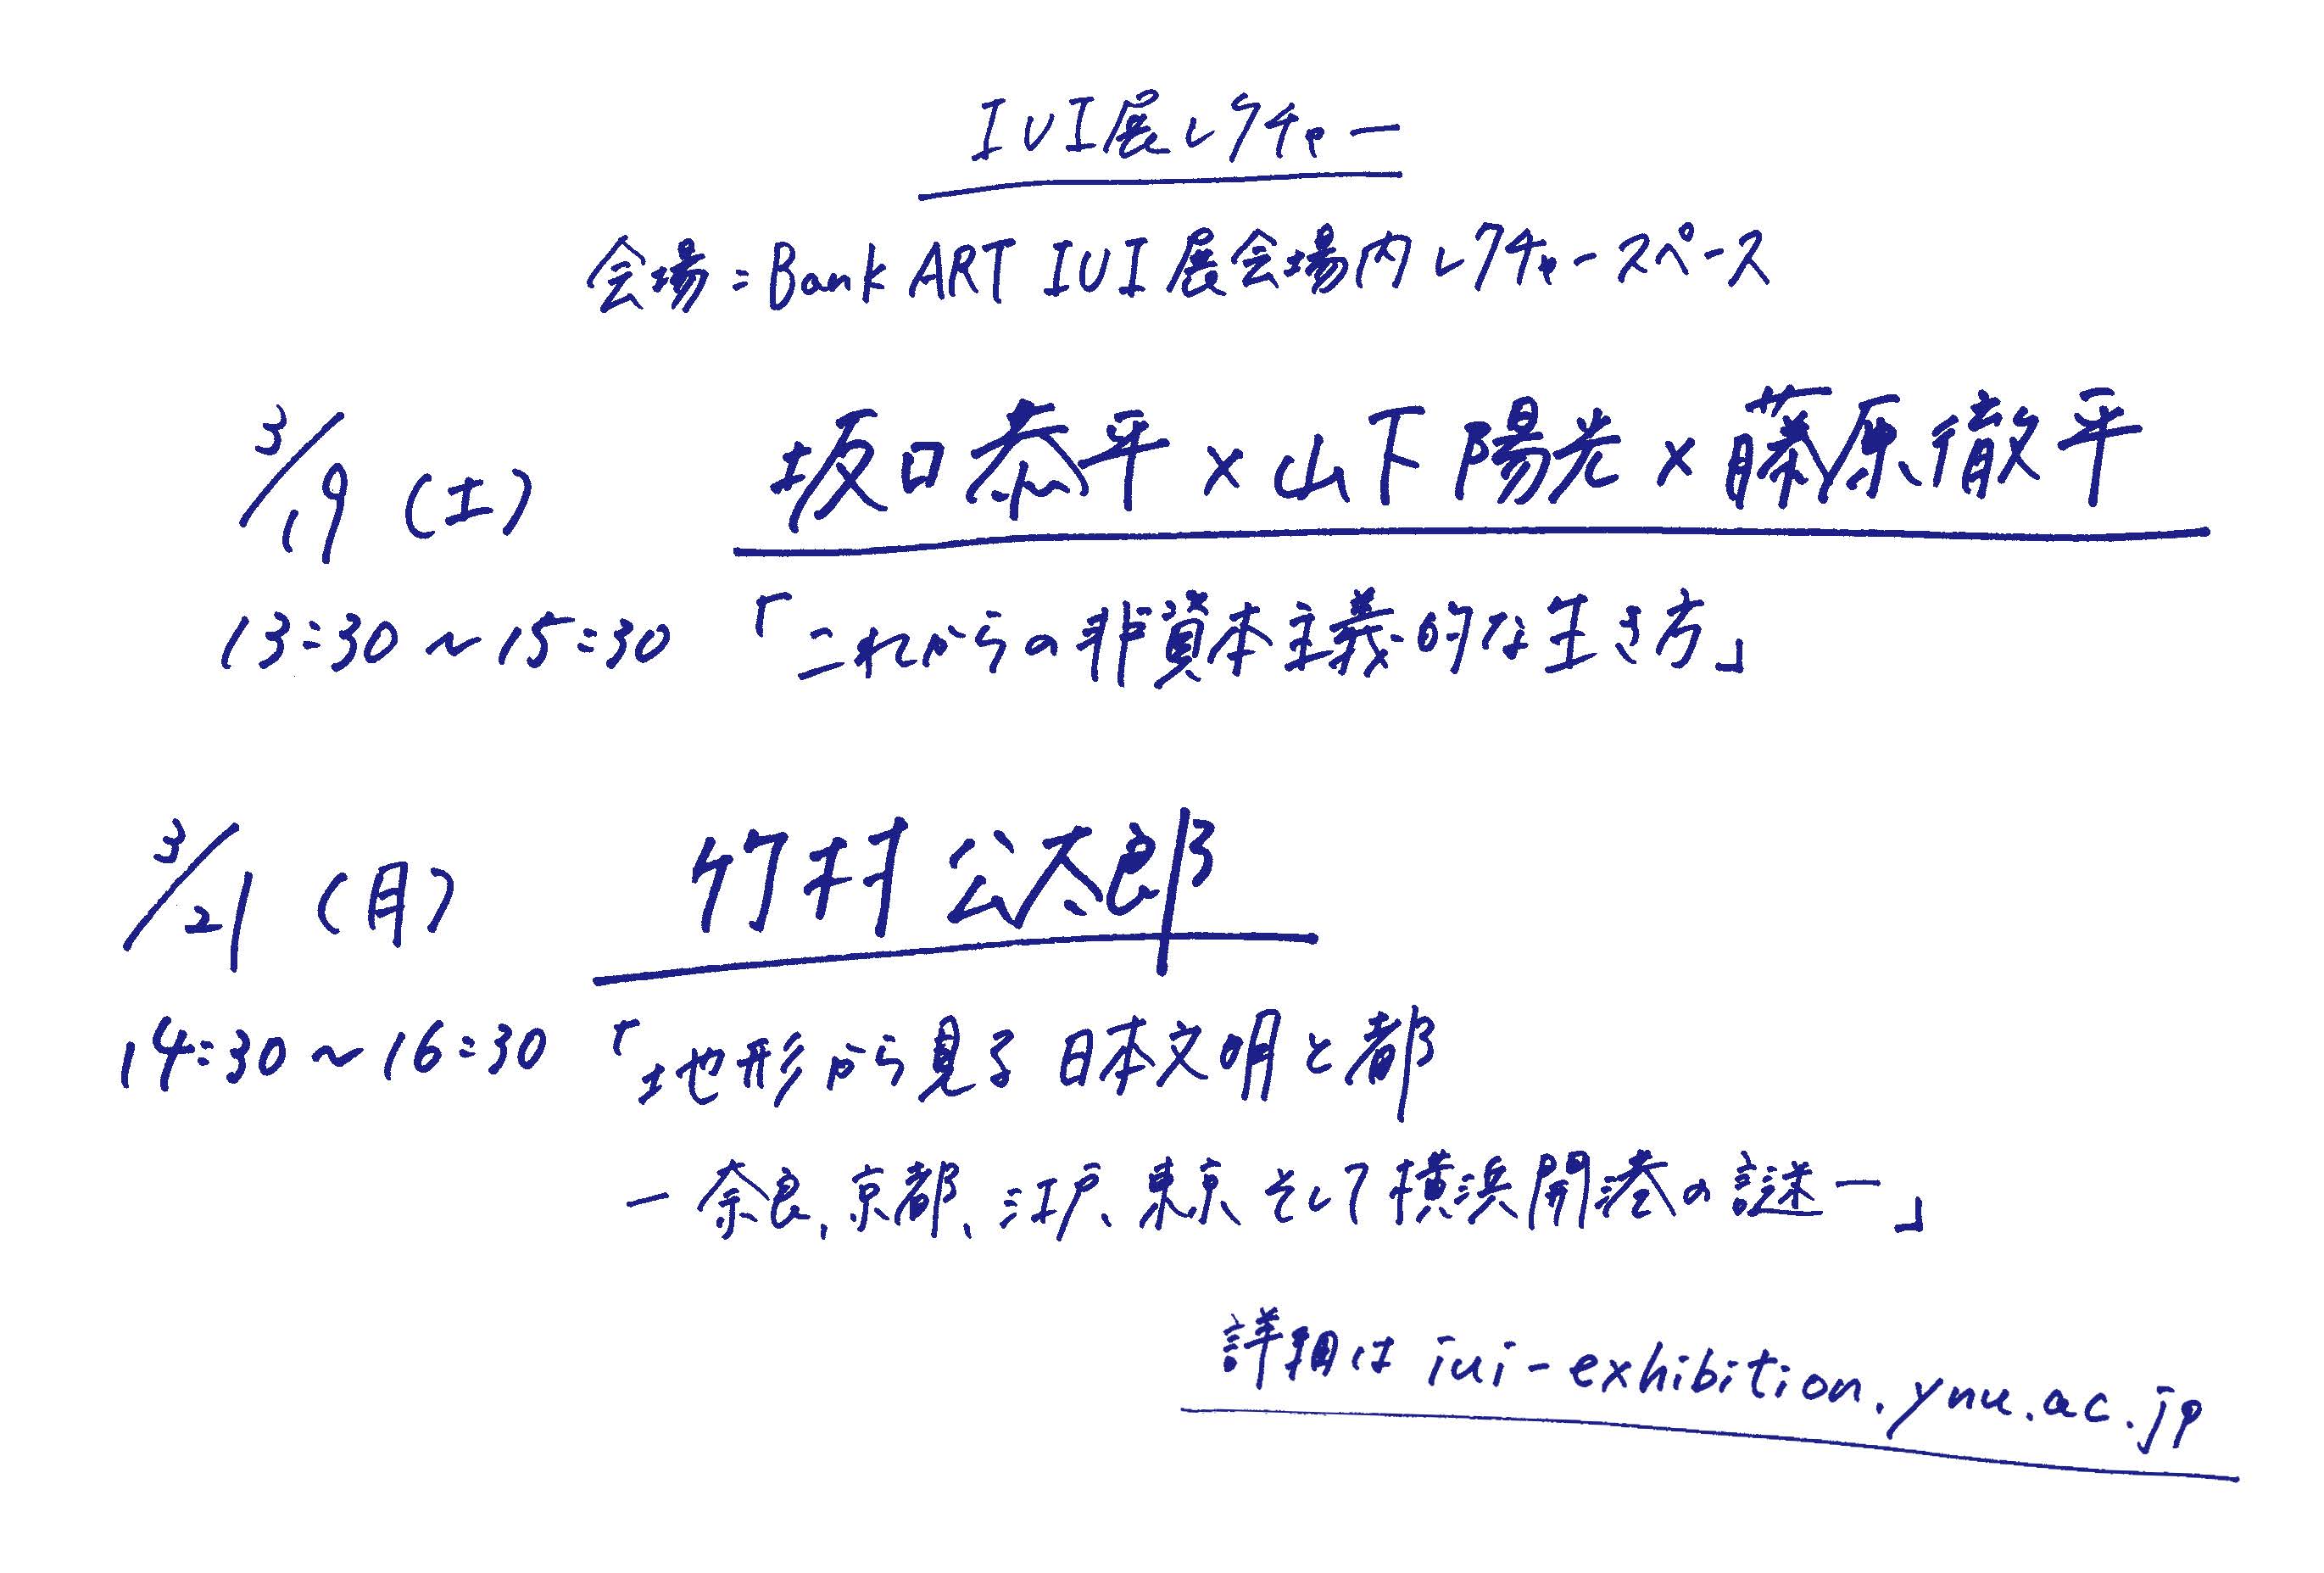 IUI展レクチャー
会場:BankART IUI展会場内レクチャースペース
3/19(土) 坂口恭平×山下陽光×藤原徹平
13:30〜15:30 「これからの非資本主義的な生き方」
3/21(月) 竹村公太郎
14:30〜16:30 「地形から見る日本文明と都
ー奈良、京都、江戸、東京、そして横浜開港の謎ー」
詳細は iui-exhibition.ynu.ac.jp